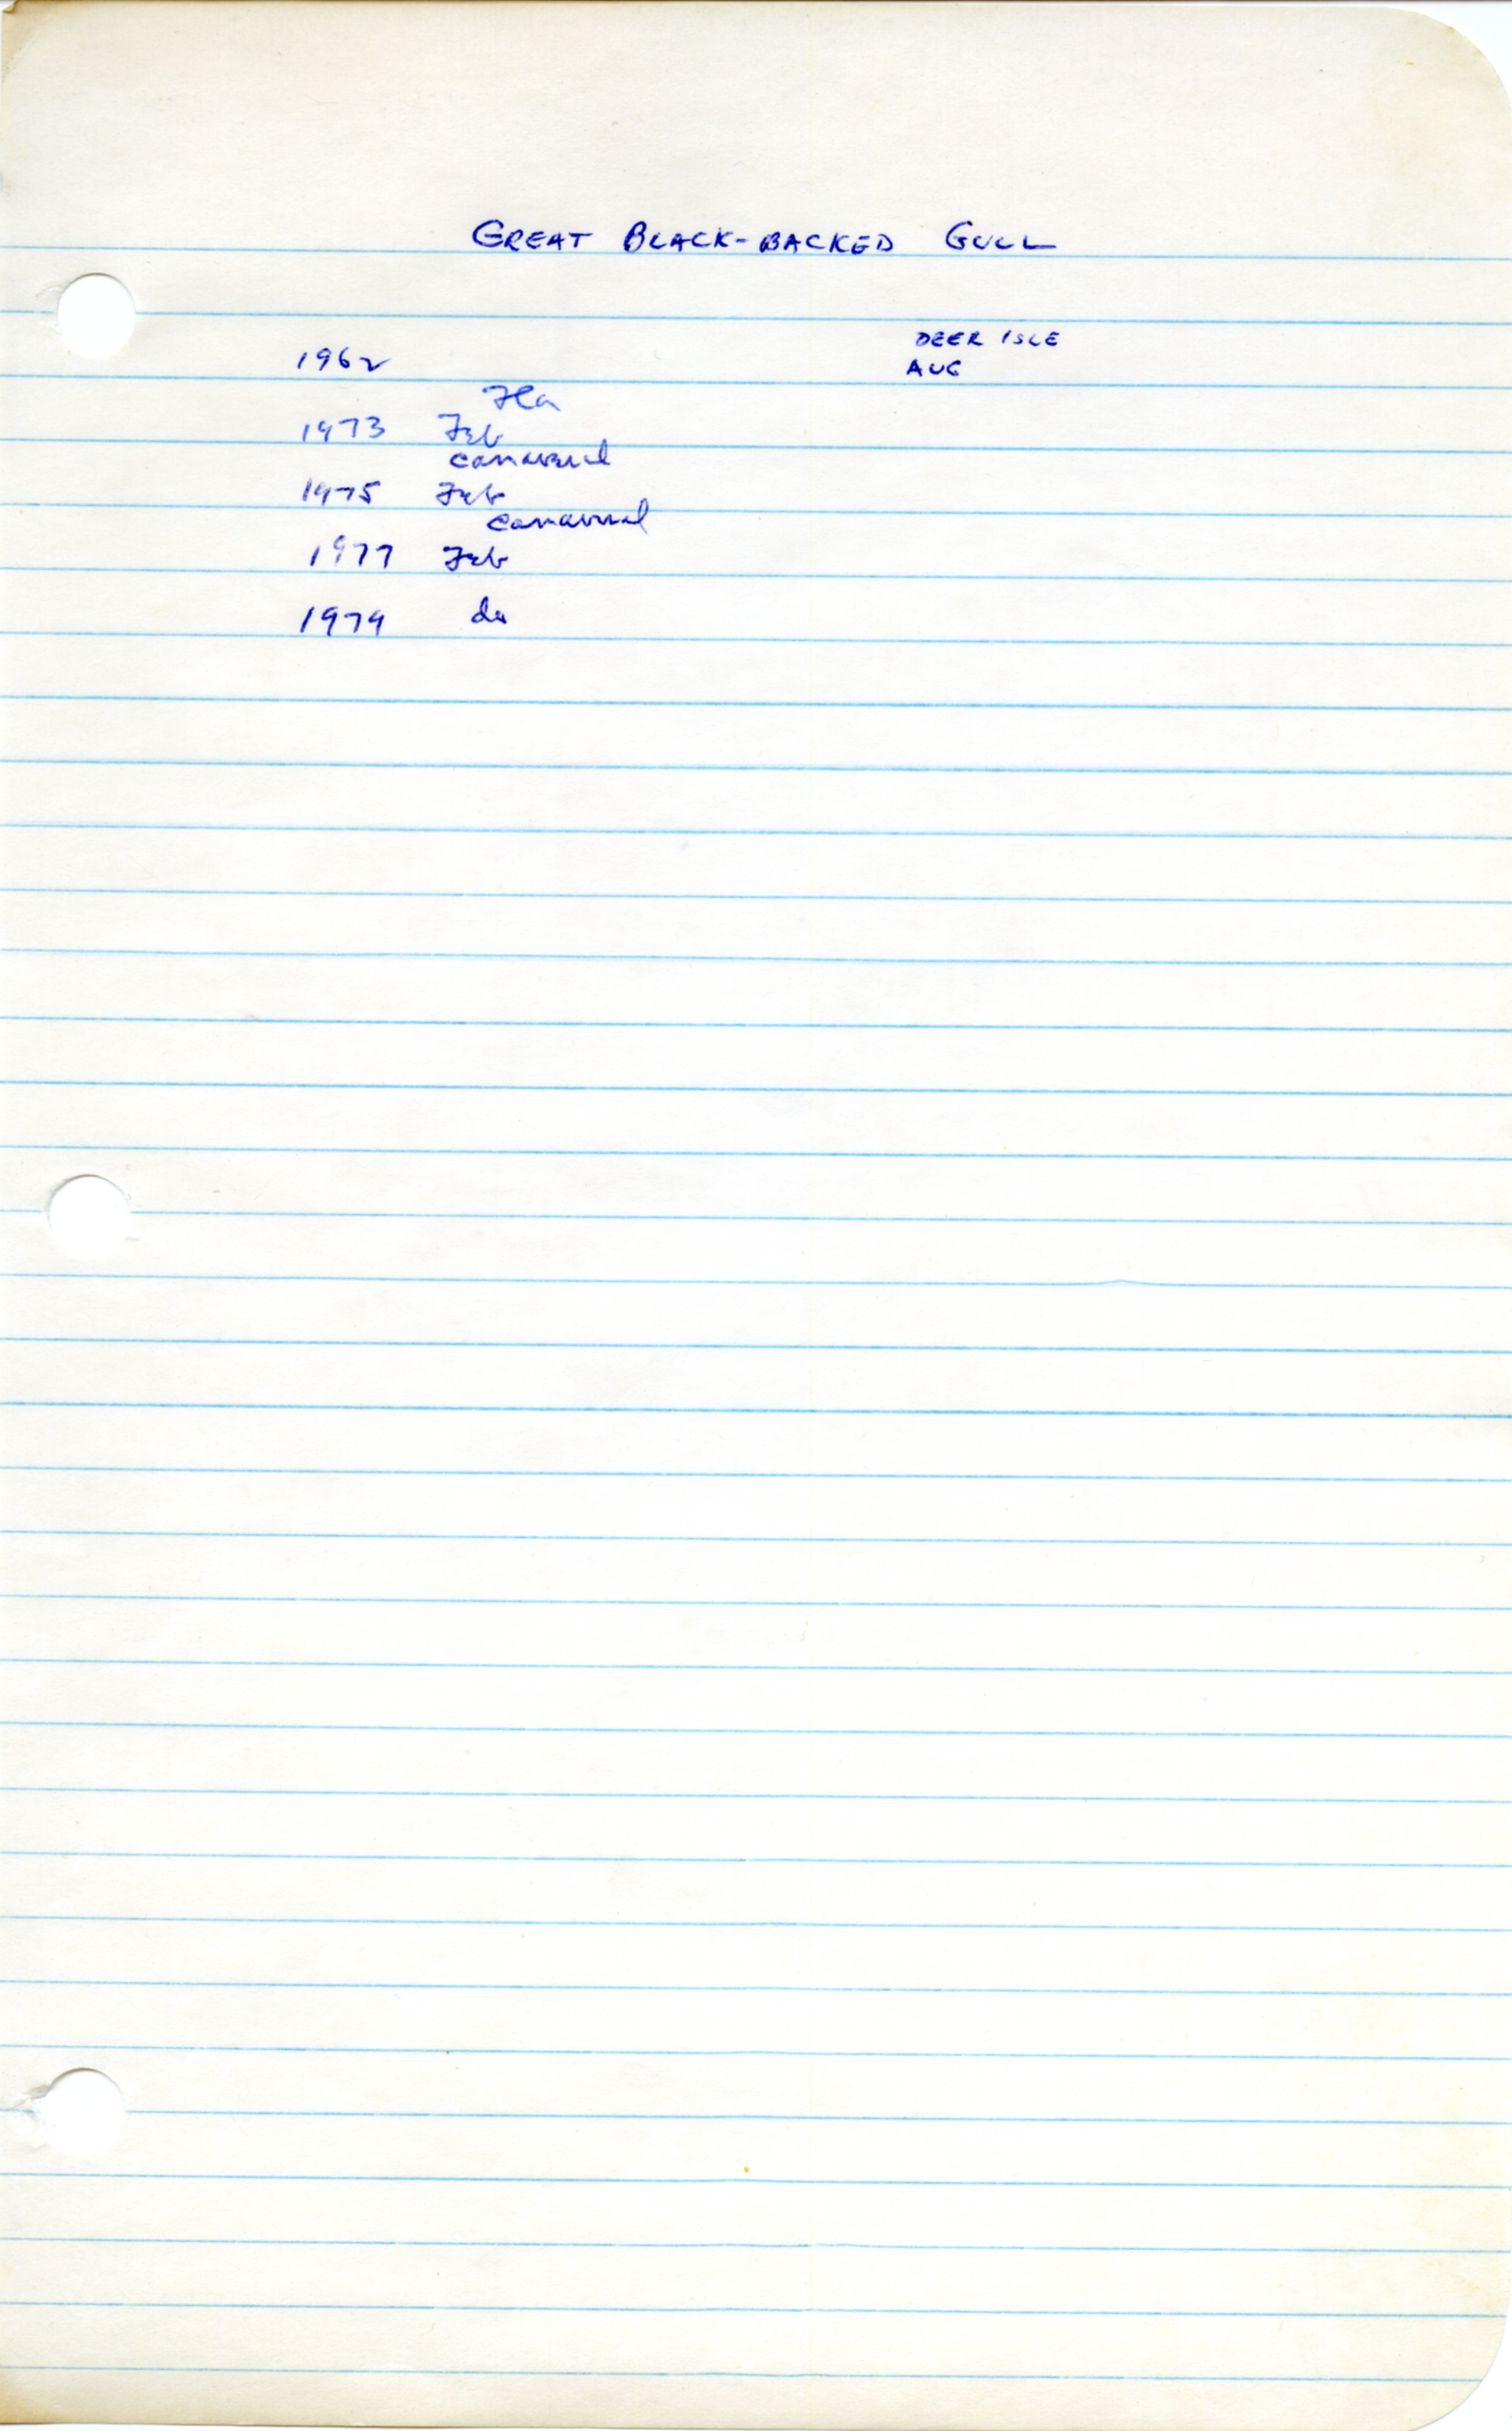 GREAT BLACK-BACKED GULL
DEER ISLE
1962 AUG
Fla
1973 Feb
Canaveral
1975 Feb
Canaveral
1977 Feb
1979 do